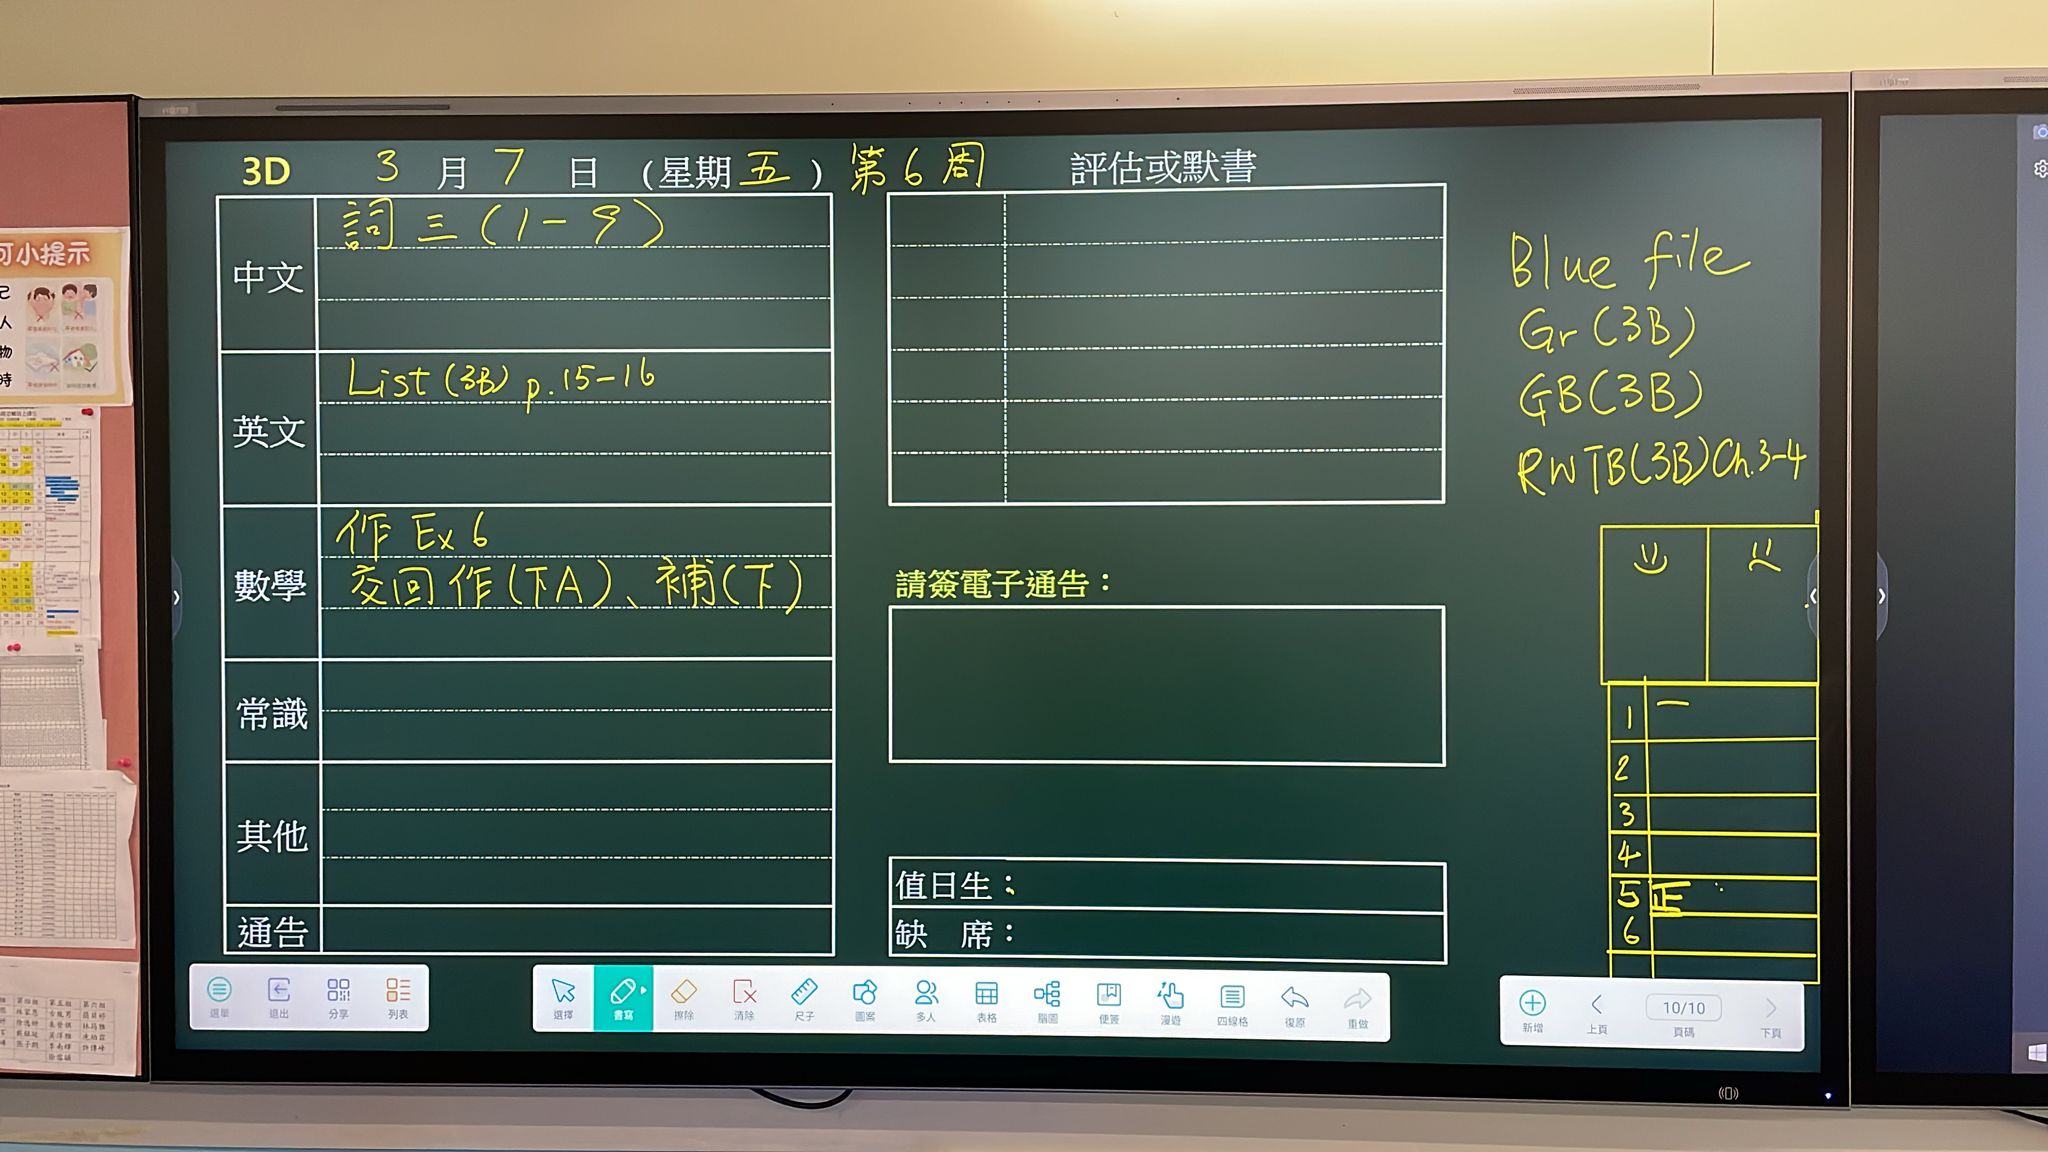 3D 3月7日(星期五)第6周
中文
詞三(1-9)
英文
List (3B) p.15-16
數學
作 Ex 6
交回作(下A)、補(下)
常識
其他
通告
評估或默書
請簽電子通告：
值日生：
缺 席：
Blue file
Gr (3B)
GB (3B)
RW TB(3B) Ch.3-4
1 一
2
3
4
5 正
6
選單 退出 分享 列表
選擇 書寫 擦除 清除 尺子 圖案 多人 表格 腦圖 便簽 漫遊 四線格 復原 重做
新增 上頁 10/10 頁碼 下頁
可小提示
己
人
物
時